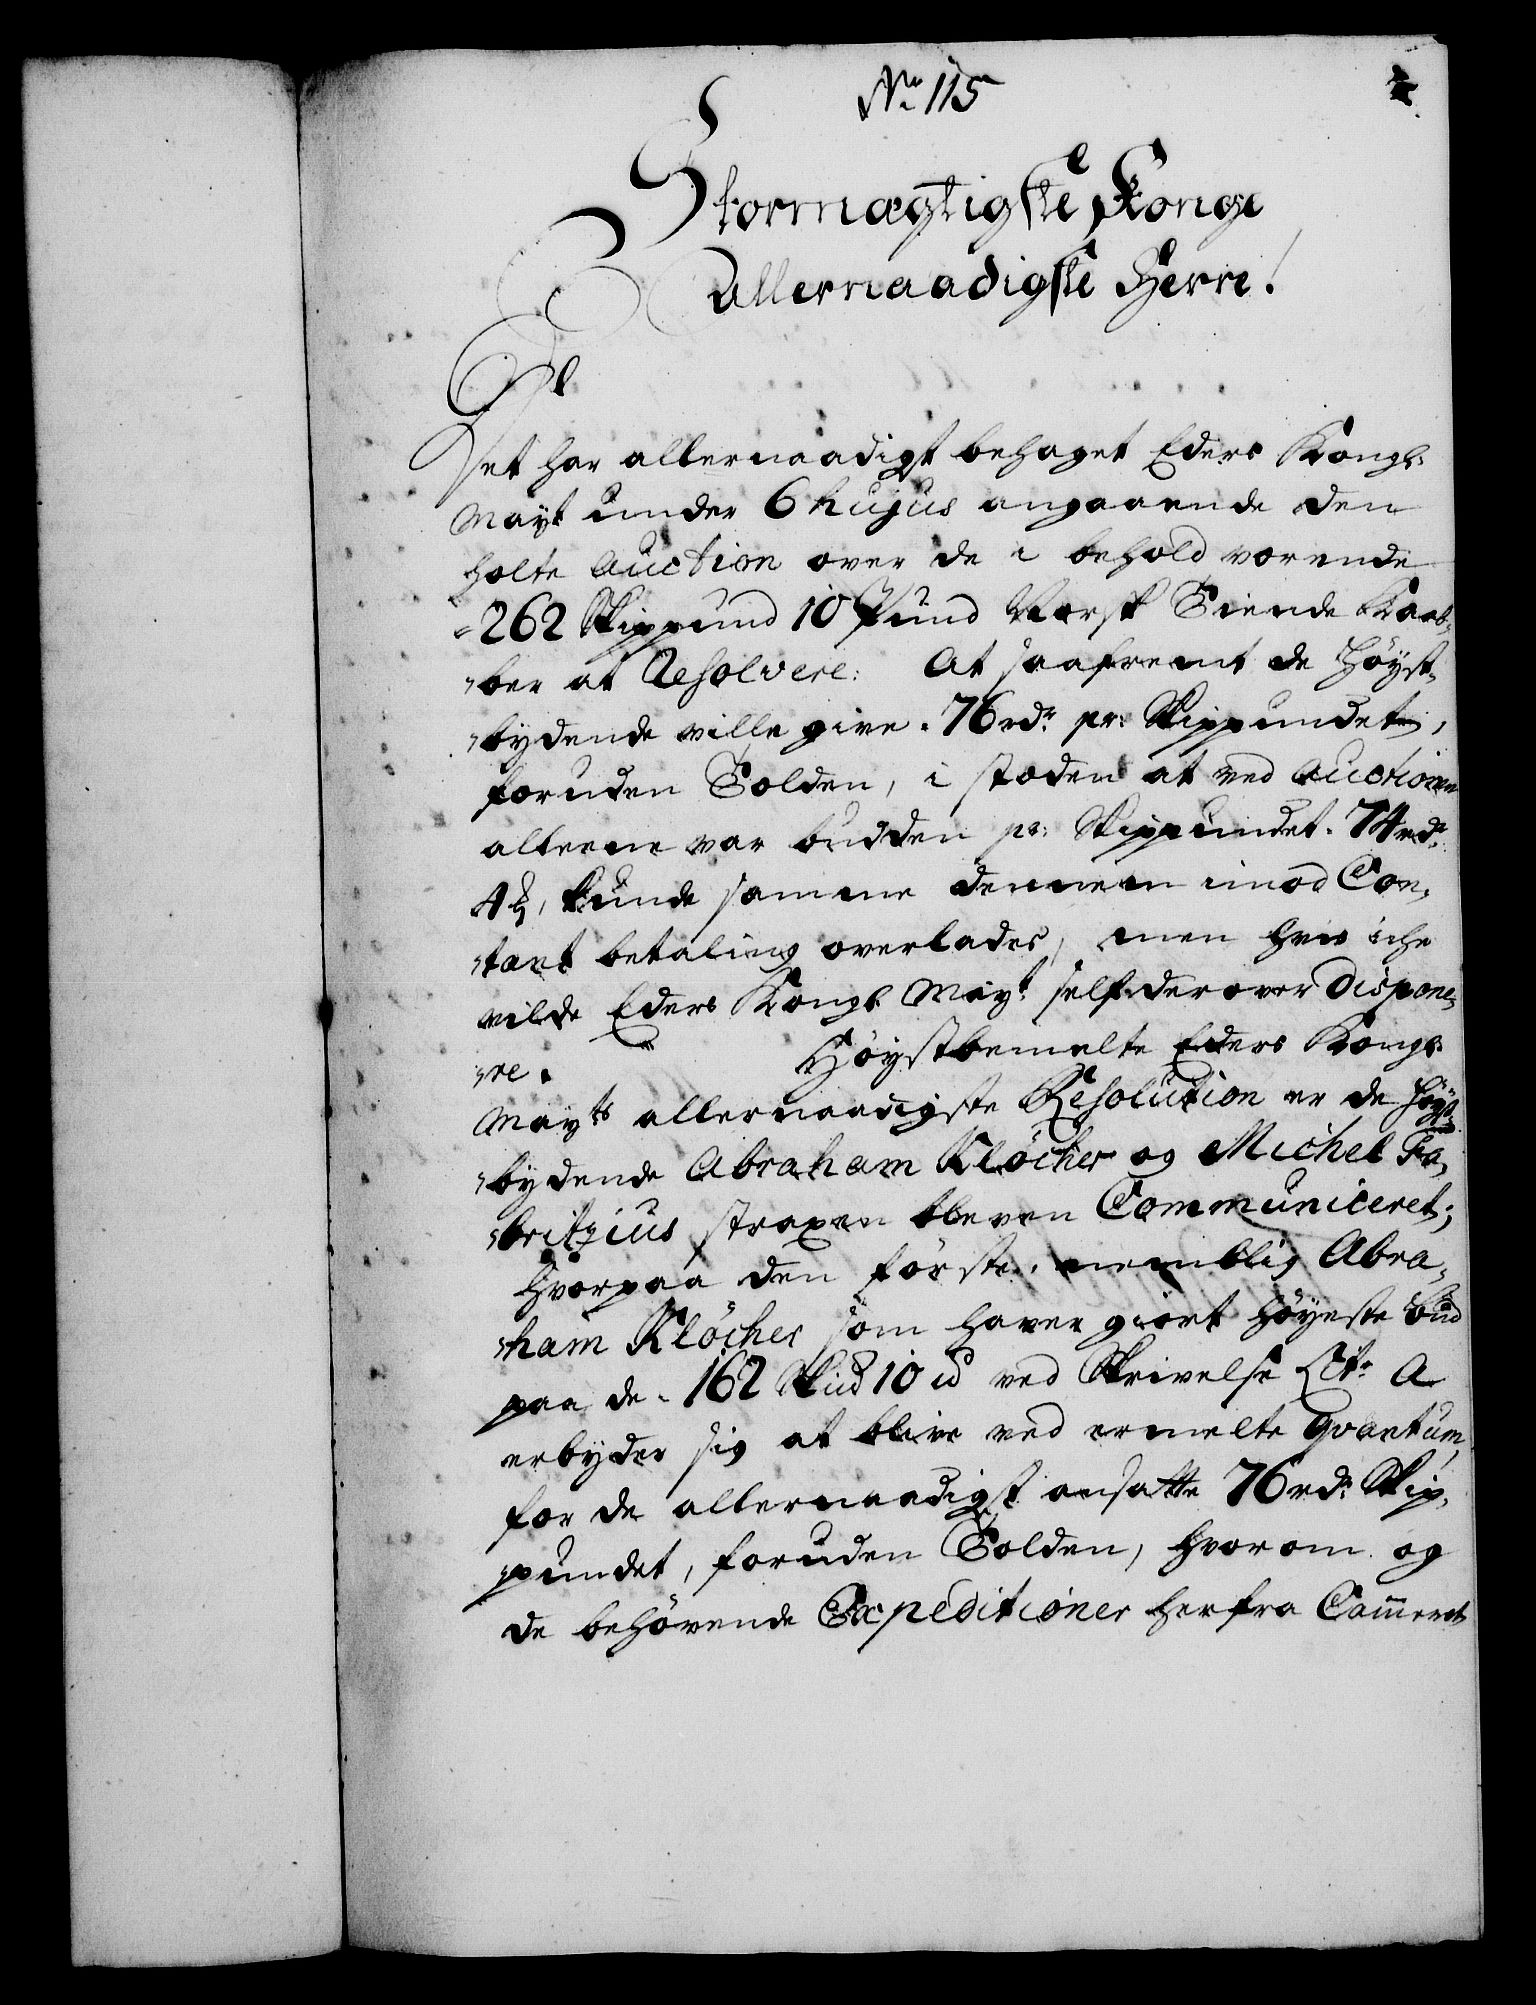 No 115
Stormægtigste Konge
Allernaadigste Herre!
Det har allernaadigst behaget Eders Kongl:
Mayt under 6 hujus angaaende den
holte Auction over de i behold værende
262 Skippund 10 Pund Norsk Tiende Kaab-
ber at Resolvere: At saafremt de Høyst-
bydende ville give 76 rdr pr: Skippundet,
foruden Tolden, i stæden at ved Auctionen
alleene var budden pr: Skippundet 74 rdr
4 ℔, kunde samme dennem imod Con-
tant betaling overlades, men hvis iche
vilde Eders Kongl Mayt self derover dispone-
re. Høystbemelte Eders Kongl:
Mayts allernaadigste Resolution er de Høyst-
bydende Abraham Kløcher og Michel Fa-
britzius straxen bleven Communiceret;
Hvorpaa den første, nemblig Abra-
ham Kløcher som haver giort høyeste bud
paa de 162 Skud 10 ℔ ved Skrivelse Litr A
erbyder sig at blive ved ermelte Qvantum,
for de allernaadigst ansatte 76 rdr Skip-
pundet, foruden Tolden, hvorom og
de behøvende Expeditioner herfra Cammeret